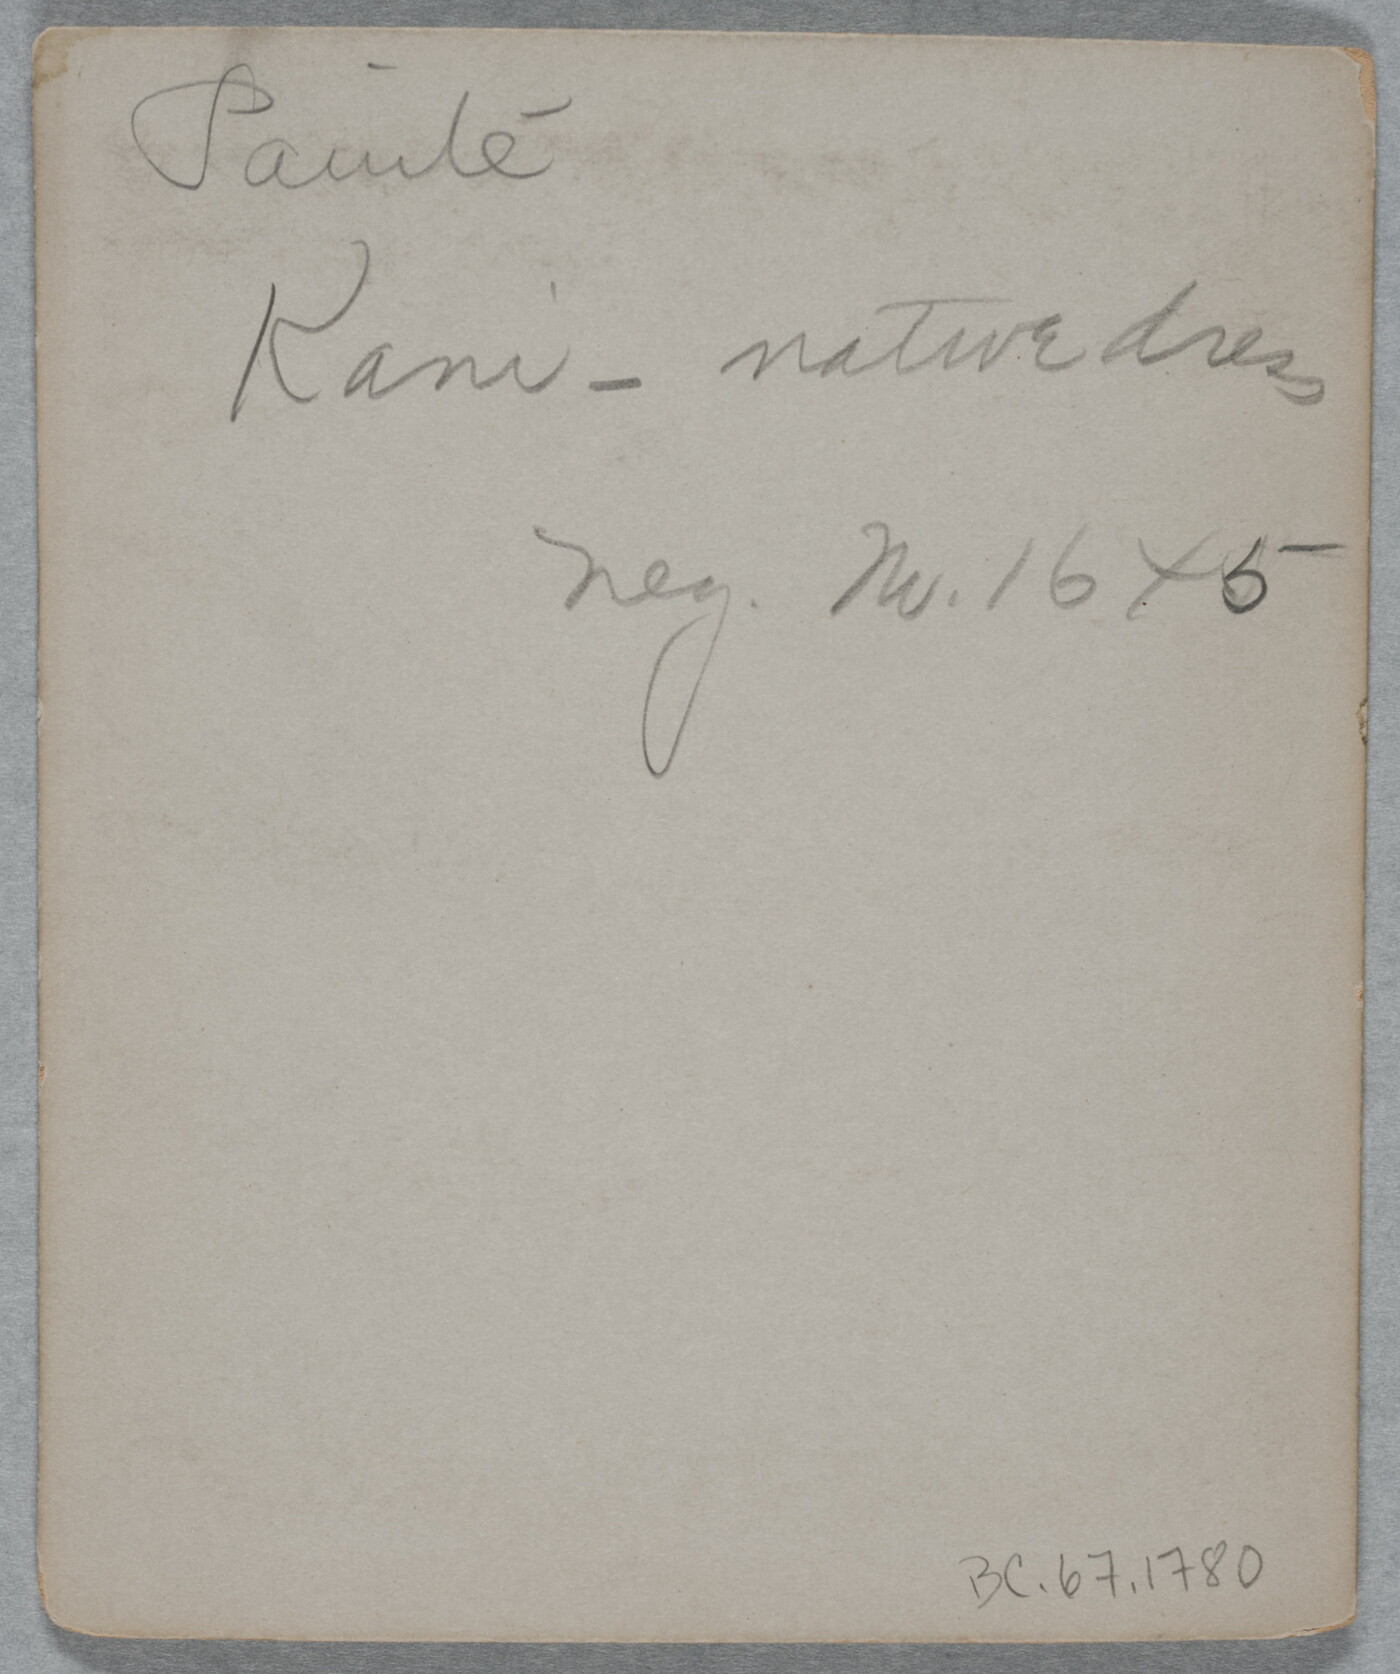 Paiute
Kani - native dress
Neg. No. 1645
BC.67.1780